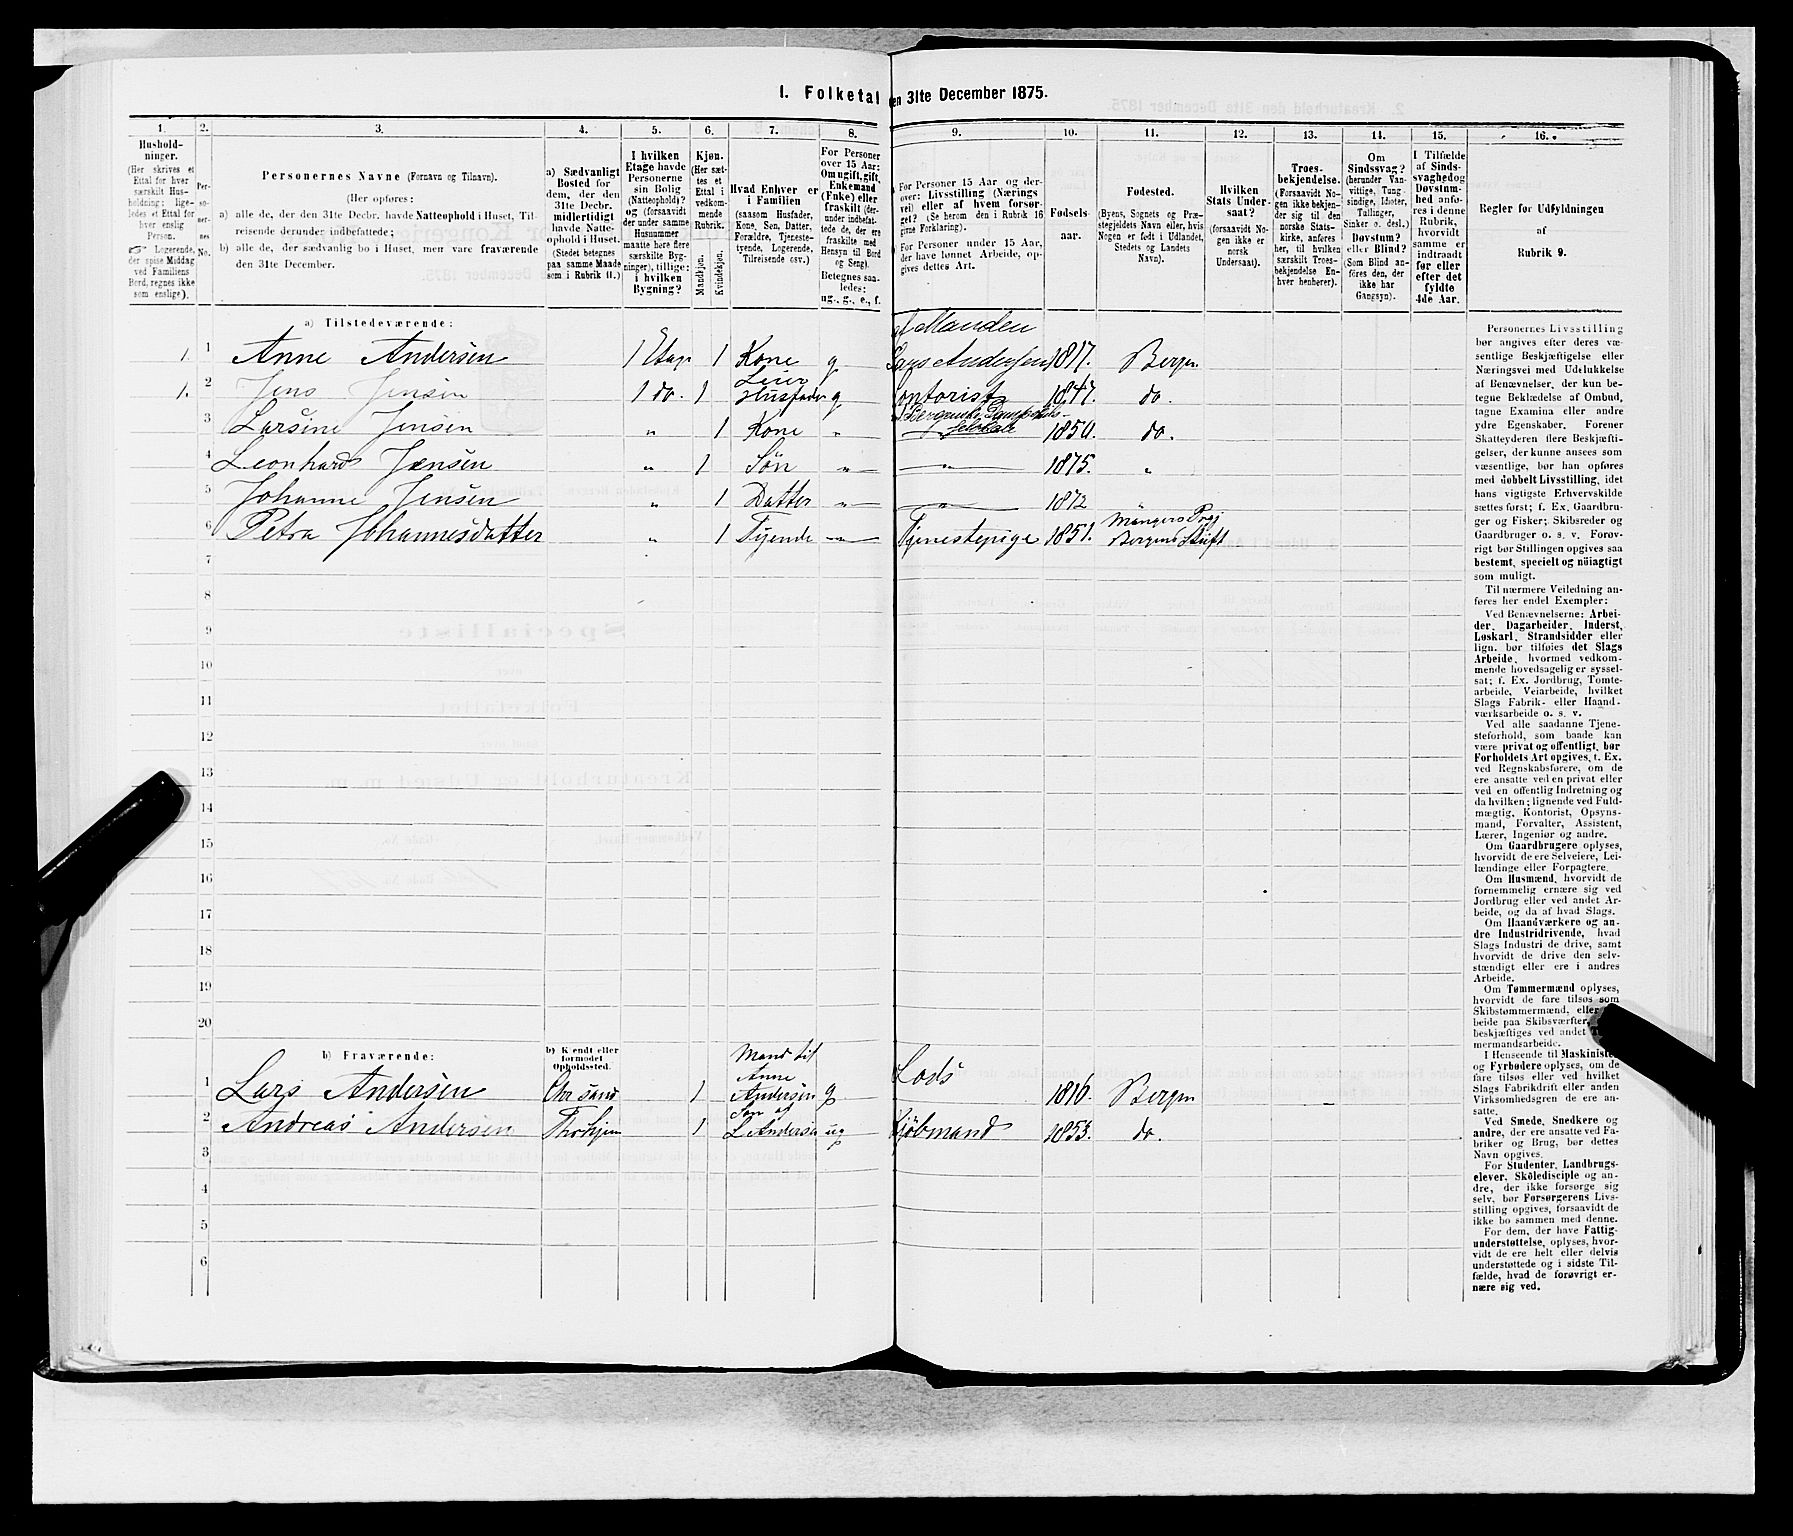 1. Folketal den 31te December 1875.
1.
2.
3.
4.
5.
6.
7.
8.
9.
10.
11.
12.
13.
14.
15.
16.
Hushold-
ninger.
(Her skrives et
Ettal for hver
særskilt Hus-
holdning; lige-
ledes et Ettal for
hver enslig
Person.
Logerende,
der spise Middag
ved Familiens
Bord, regnes ikke
som enslige).
Per-
so-
ner-
nes
No.
Personernes Navne (Fornavn og Tilnavn).
(Her opføres:
a) alle de, der den 31te Decbr. havde Natteophold i Huset, Til-
reisende derunder indbefattede;
b) alle de, der sædvanlig bo i Huset, men vare fraværende
den 31te December.
a) Sædvanligt
Bosted for
dem, der den
31te Decbr.
midlertidigt
havde Natte-
ophold i Huset.
(Stedet betegnes
paa samme Maade
som i Rubrik 11.)
I hvilken
Etage havde
Personerne
sin Bolig
(Natteophold)?
og (forsaavidt
der under samme
Husnummer
maatte høre flere
særskilte Byg-
ninger), tillige:
i hvilken
Bygning?
Kjøn.
(Her sæt-
tes et
Ettal i
vedkom-
mende
Rubrik.
Mandkjøn.
Kvindekjøn.
Hvad Enhver er
i Familien
(saasom Husfader,
Kone, Søn, Datter,
Forældre, Tjeneste-
trende, Logerende,
Tilreisende osv.).
For Personer
over 15 Aar:
Om ugift, gift,
Enkemand
(Enke) eller
fraskilt (der-
under indbefat-
tede de, der ere
fraskilte med
Hensyn til Bord
og Seng).
Betegnes saa-
ledes:
ug., g., e., f.
For Personer 15 Aar og der-
over: Livsstilling (Nærings
vei) eller af hvem forsør-
get? (Se herom den i Rubrik 16
givne Forklaring).
For Personer under 15 Aar,
der have lønnet Arbeide, op-
gives dettes Art.
Fødsels-
aar.
Fødested.
(Byens, Sognets og Præ-
stegjeldets Navn eller, hvis
Nogen er født i Udlandet,
Stedets og Landets
Navn).
Hvilken
Stats Under-
saat?
(forsaavidt No-
gen ikke er
norsk
Undersaat).
Troes-
bekjendelse.
(Forsaavidt No-
gen ikke bekjen-
der sig til den
norske Stats-
kirke, anføres
her, til hvilken
særskilt Troes-
bekjendelse En-
hver henhører).
Om
Sindssvag?
(herunder Van-
vittige, Tung-
sindige, Idioter,
Tullinger,
Sinker o. desl.)
Døvstum?
eller Blind?
(Som Blind an-
føres den, der
ikke har
Gangsyn).
I Tilfælde
af Sinds-
svaghed og
Døvstum-
hed anfø-
res i denne
Rubrik,
hvorvidt
samme er
indtraadt
før eller
efter det
fyldte
4de Aar.
Regler for Udfyldningen
af
Rubrik 9.
a) Tilstedeværende:
1. 1 Anne Andersen 1 Etage 1 Kone g af Manden Lars Andersen 1817. Bergen
1. 2 Jens Jensen 1 do. 1 Leier Husfader g Contorist 1847. do.
3 Larsine Jensen " 1 Kone " i Bergenske Dampskibs- Selskab 1850. do.
4 Leonhard Jensen " 1 Søn " " 1875. "
5 Johanne Jensen " 1 Datter " " 1872 "
6 Petra Johannesdatter " 1 Tyende " Tjenestepige 1851. Mangers Præj Bergens Stift
7
8
9
10
11
12
13
14
15
16
17
18
19
20
b) Fraværende:
b) Kjendt eller
formodet
Opholdssted.
1 Lars Andersen Chrsand 1 Mand til Anne Andersen g Lods 1816. Bergen
2 Andreas Andersen Thrhjem 1 Søn af L Andersen ug Kjøbmand 1853. do.
3
4
5
6
Personernes Livsstilling
bør angives efter deres væ-
sentlige Beskjæftigelse eller
Næringsvei med Udelukkelse
af Benævnelser, der kun be-
tegne Beklædelse af Ombud,
tagne Examina eller andre
ydre Egenskaber. Forener
Skatteyderen flere Beskjæfti-
gelser, der kunne ansees som
væsentlige, bør han opføres
med dobbelt Livsstilling, idet
hans vigtigste Erhvervskilde
sættes først; f. Ex. Gaardbru-
ger og Fisker; Skibsreder og
Gaardbruger o. s. v. Forøv-
rigt bør Stillingen opgives saa
bestemt, specielt og nöiagtigt
som muligt.
Til nærmere Veiledning an-
føres her endel Exempler:
Ved Benævnelserne: Arbei-
der, Dagarbeider, Inderst,
Løskarl, Strandsidder eller
lign. bør tilføies det Slags
Arbeide, hvormed vedkom-
mende hovedsagelig er syssel-
sat; f. Ex. Jordbrug, Tomte-
arbeide, Veiarbeide, hvilket
Slags Fabrik- eller Haand-
værksarbeide o. s. v.
Ved alle saadanne Tjene-
steforhold, som baade kan
være privat og offentligt, bør
Forholdets Art opgives, t. Ex.
ved Regnskabsførere, om de
ere ansatte ved en privat eller
ved en offentlig Indretning og
da hvilken; lignende ved Fuld-
mægtig, Kontorist, Opsyns-
mand, Forvalter, Assistent,
Lærer, Ingeniør og andre.
Om Gaardbrugere oplyses,
hvorvidt de ere Selveiere, Lei-
lændinge eller Forpagtere.
Om Husmænd, hvorvidt de
fornemmelig ernære sig ved
Jordbrug eller ved andet Ar-
beide, og da af hvad Slags.
Om Haandværkere og an-
dre Industridrivende, hvad
Slags Industri de drive, samt
hvorvidt de drive den selv-
stændigt eller ere i andres
Arbeide.
Om Tømmermænd oplyses,
hvorvidt de fare tilsøs som
Skibstømmermænd, eller
beide paa Skibsværfter,
beskjæftiges ved andet
mermandsarbeide.
I Henseende til Maskinister
og Fyrbødere oplyses, om de
fare tilsøs eller ved hvilket
Slags Fabrikdrift eller anden
Virksomhedsgren de ere an-
satte.
Ved Smede, Snedkere og
andre, der ere ansatte ved Fa-
briker og Brug, bør dettes
Navn opgives.
For Studenter, Landbrugs-
elever, Skoledisciple og an-
dre, der ikke forsørge sig
selv, bør Forsørgerens Livs-
stilling opgives, forsaavidt de
ikke bo sammen med denne.
For dem, der have Fattig-
understøttelse, oplyses, hvor-
vidt de ere helt eller delvis
understøttede og i sidste Til-
fælde, hvad de forøvrigt er-
nære sig ved.